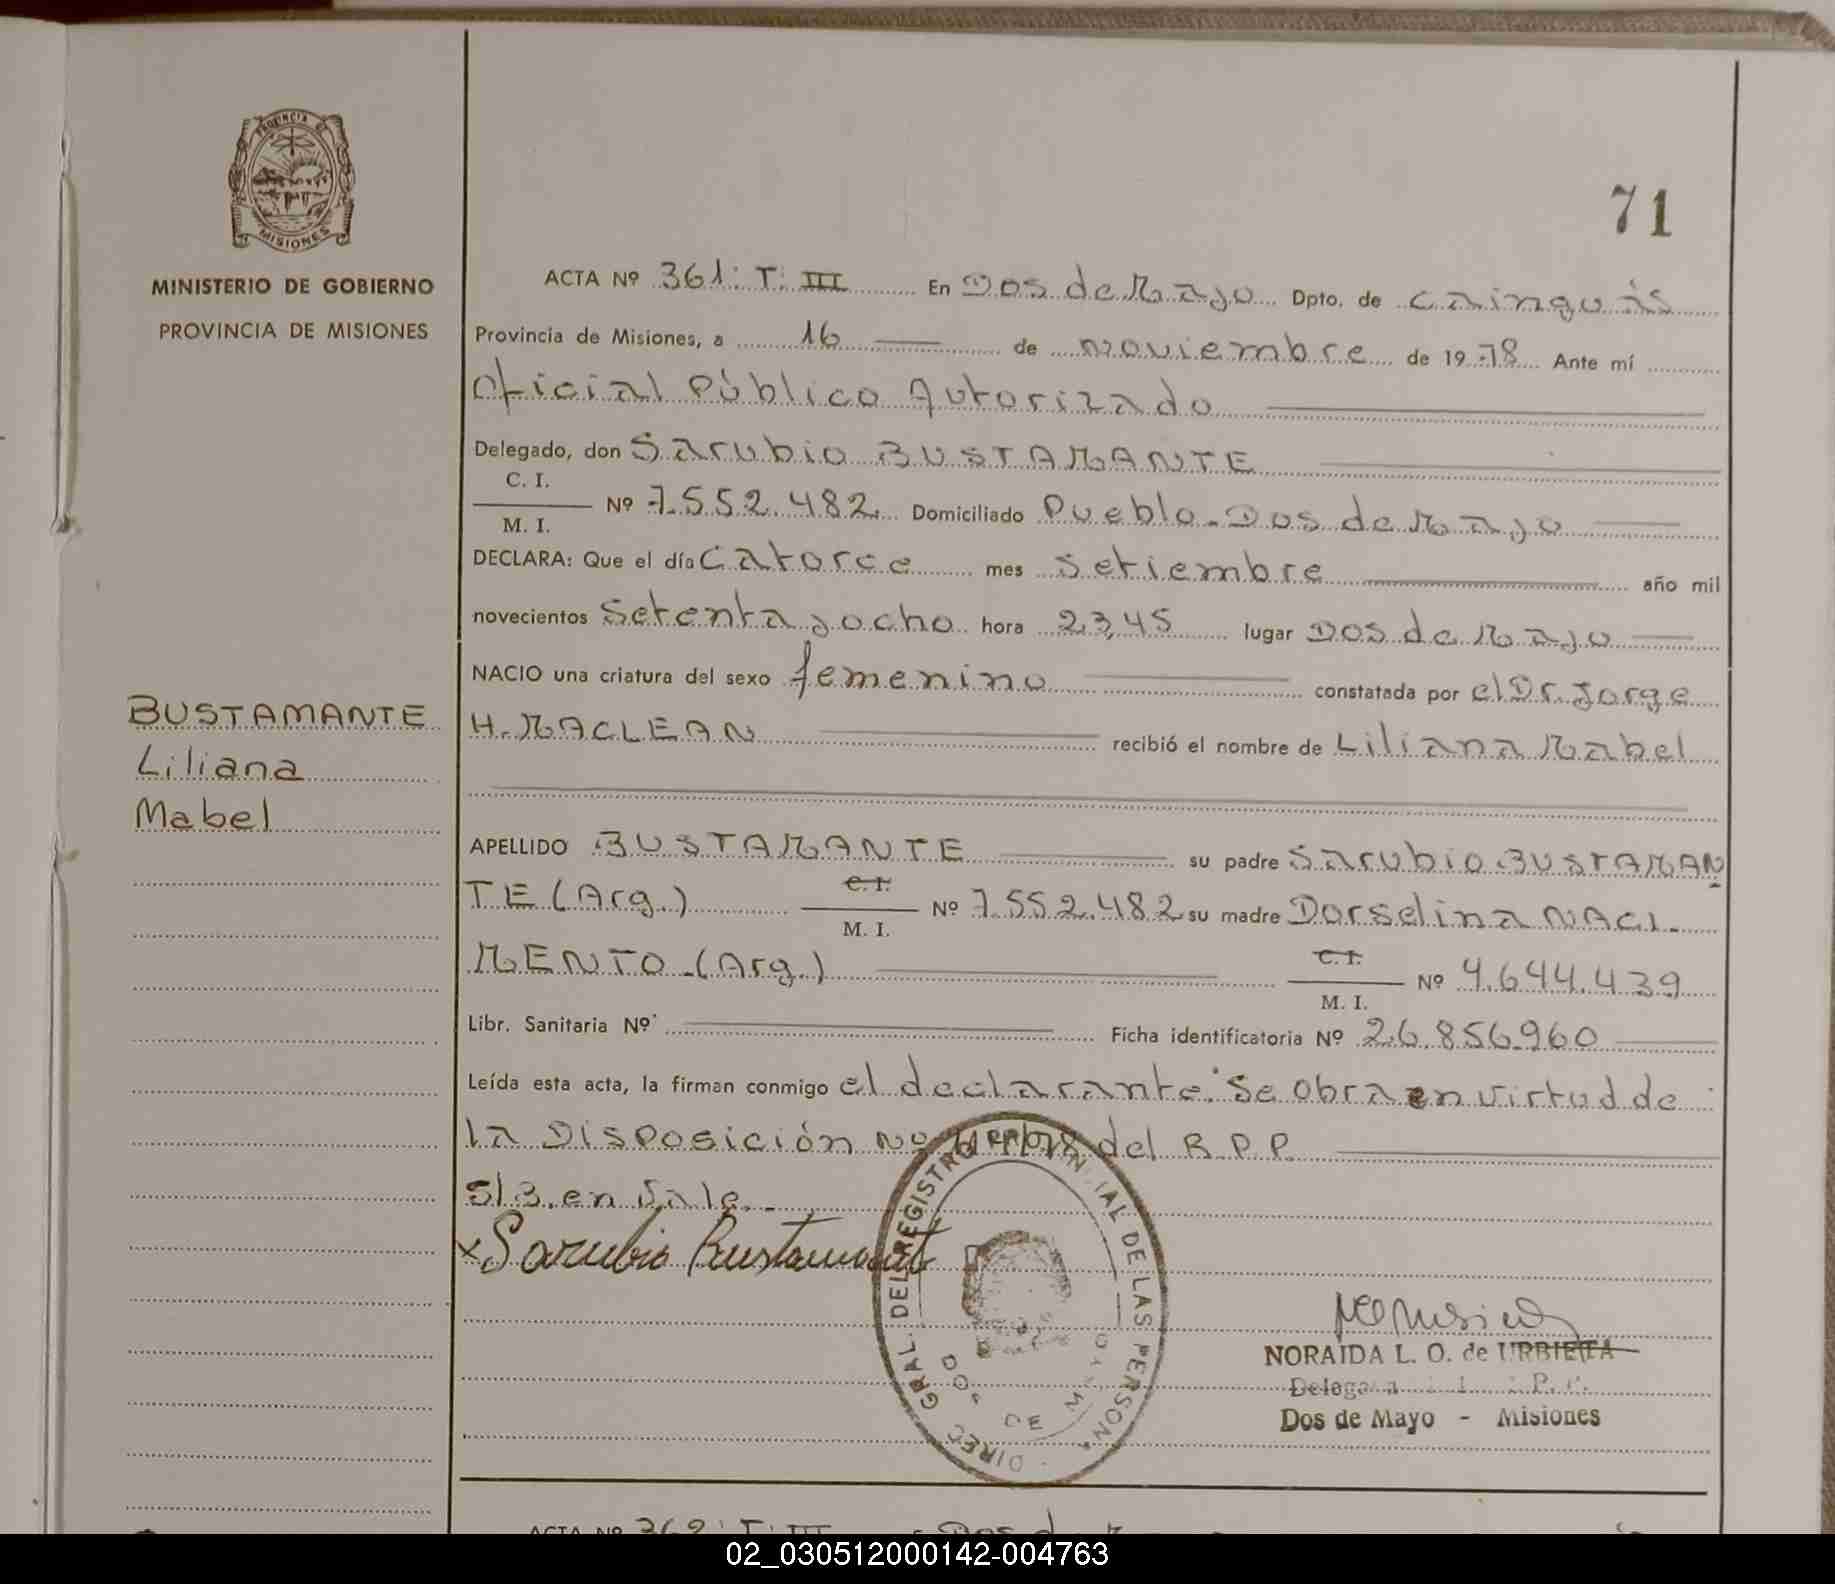 PROVINCIA DE
MISIONES
MINISTERIO DE GOBIERNO
PROVINCIA DE MISIONES
BUSTAMANTE
Liliana
Mabel
71
ACTA Nº 361: T: III En Dos de Mayo Dpto. de Cainguás
Provincia de Misiones, a 16 de noviembre de 1978 Ante mí
Oficial Público Autorizado
Delegado, don Sarubio BUSTAMANTE
C. I.
M. I. Nº 7.552.482 Domiciliado Pueblo Dos de Mayo
DECLARA: Que el día Catorce mes setiembre año mil
novecientos setenta y ocho hora 23,45 lugar Dos de Mayo
NACIO una criatura del sexo femenino constatada por el Dr. Jorge
H. MACLEAN recibió el nombre de Liliana Mabel
APELLIDO BUSTAMANTE su padre Sarubio BUSTAMAN
TE (Arg.) C. I. M. I. Nº 7.552.482 su madre Dorselina NACI-
MENTO (Arg.) C. I. M. I. Nº 4.644.439
Libr. Sanitaria Nº Ficha identificatoria Nº 26.856.960
Leída esta acta, la firman conmigo el declarante. Se obra en virtud de
la Disposición Nº del R.P.P.
S/B. en Vale.
x Sarubio Bustamante
DIREC. GRAL. DEL REGISTRO PROVINCIAL DE LAS PERSONA
DOS DE MAYO
NORAIDA L. O. de URBIETA
Dos de Mayo - Misiones
ACTA Nº 362: T: III
02_030512000142-004763